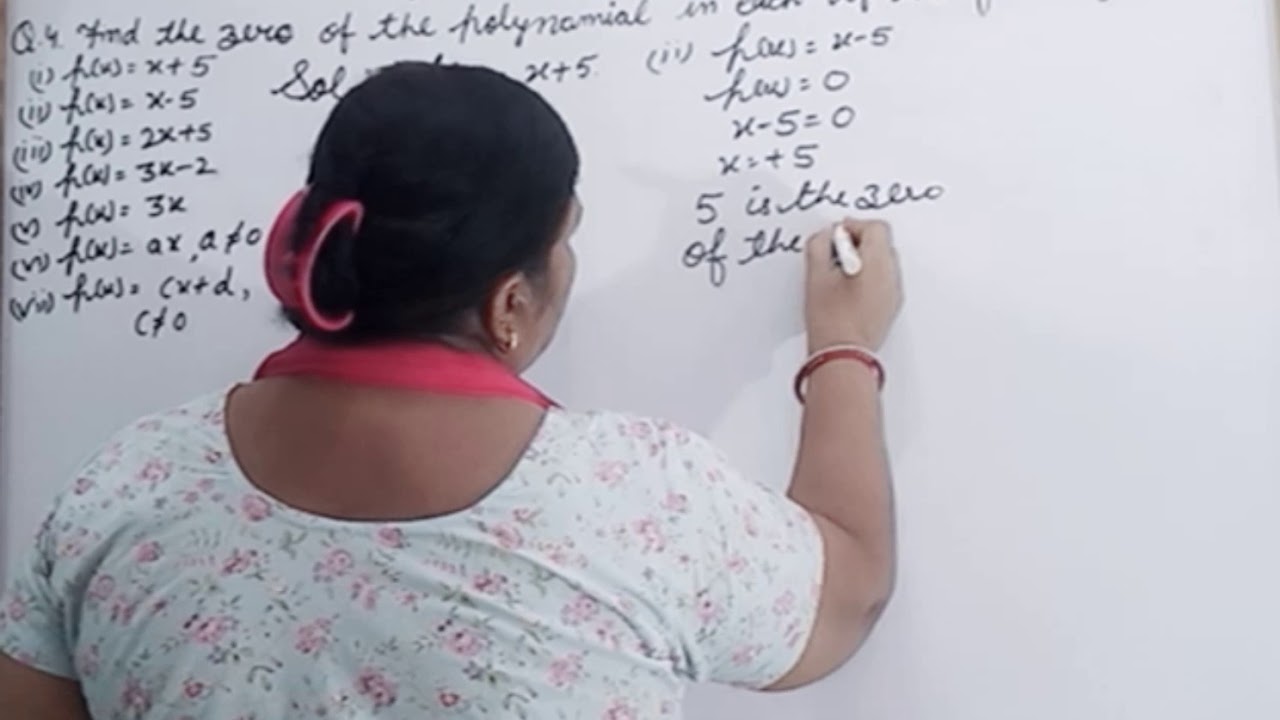 Q.4. Find the zero of the polynamial in each of
(i) p(x) = x+5
(ii) p(x) = x-5
(iii) p(x) = 2x+5
(iv) p(x) = 3x-2
(v) p(x) = 3x
(vi) p(x) = ax, a≠0
(vii) p(x) = cx+d,
c≠0
Sol
x+5
(ii) p(x) = x-5
p(x) = 0
x-5=0
x=+5
5 is the zero
of the